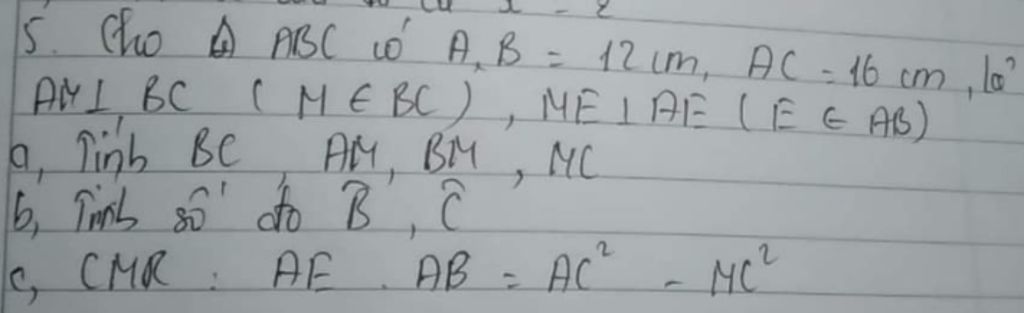 5. Cho Δ ABC có A, B = 12 cm, AC = 16 cm,
AM ⊥ BC ( M ∈ BC ) , ME ⊥ AE ( E ∈ AB)
a, Tính BC , AM, BM , MC
b, Tính số đo B̂ , Ĉ
c, CMR : AE . AB = AC² - MC²